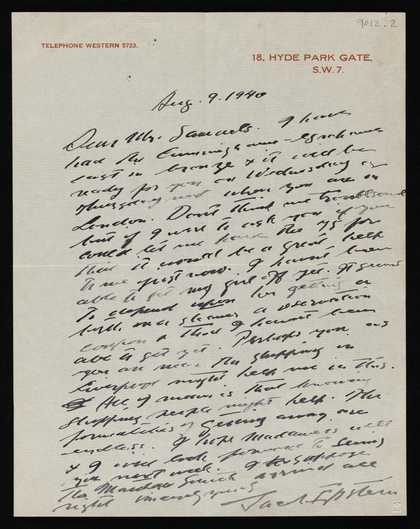 9012.2
TELEPHONE WESTERN 5723.
18, HYDE PARK GATE,
S.W.7.
Aug. 9. 1940
Dear Mr. Samuels. I have
had the Cunninghame-Grahame
cast in bronze & it will be
ready for you on Wednesday or
Thursday next when you are in
London. Don't think me troublesome
but if I were to ask you if you
could let me have the £75 for
that it would be a great help
to me just now. I haven't been
able to get my girl off yet. It seems
to depend upon her getting a
birth on a steamer a reservation
coupon & that I haven't been
able to get yet. Perhaps you as
you are near the shipping in
Liverpool might help me in this.
All I mean is that knowing
shipping people might help. The
formalities of getting away, are
endless. I hope Madame is well
& I will look forward to seeing
you next week. I suppose
the arrived all
right
Jacob Epstein